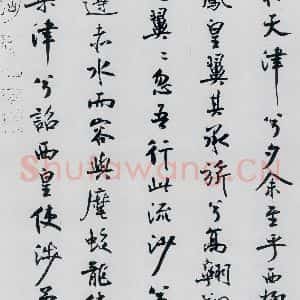 天津兮夕余至乎西極
鳳皇翼其承旂兮高翱翔
翼〻忽吾行此流沙兮
遵赤水而容與麾蛟龍使
梁津兮詔西皇使涉予
Shufawang.CN